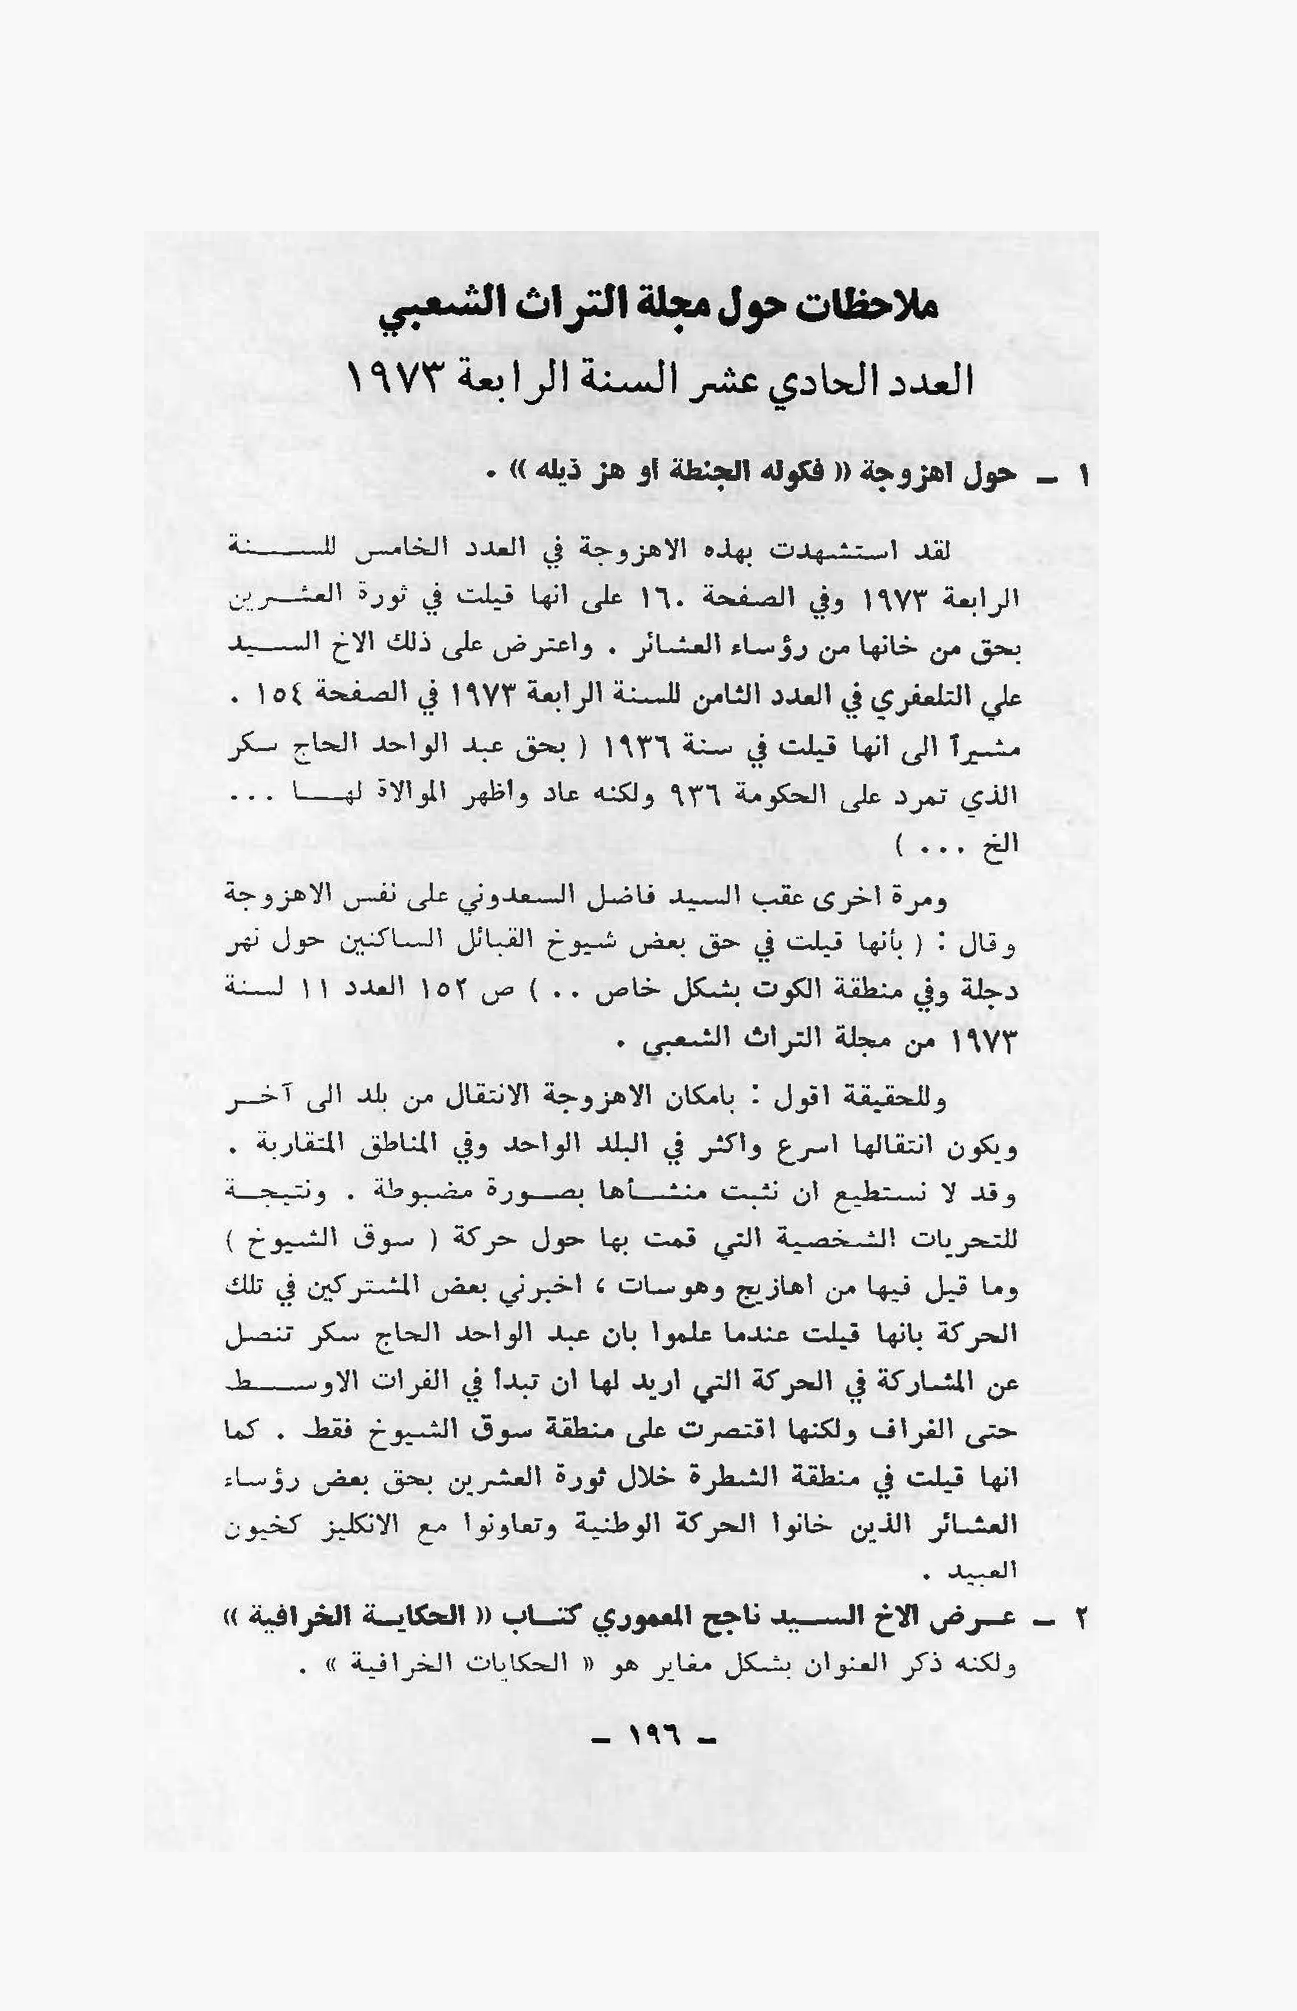 ملاحظات حول مجلة التراث الشعبي
العدد الحادي عشر السنة الرابعة ١٩٧٣
١ – حول اهزوجة « فكوله الجنطة او هز ذيله » .
لقد استشهدت بهذه الاهزوجة في العدد الخامس للسنة
الرابعة ١٩٧٣ وفي الصفحة ١٦٠ على انها قيلت في ثورة العشرين
بحق من خانها من رؤساء العشائر . واعترض على ذلك الاخ السيد
علي التلعفري في العدد الثامن للسنة الرابعة ١٩٧٣ في الصفحة ١٥٤ .
مشيراً الى انها قيلت في سنة ١٩٣٦ ( بحق عبد الواحد الحاج سكر
الذي تمرد على الحكومة ٩٣٦ ولكنه عاد واظهر الموالاة لها ...
الخ ... )
ومرة اخرى عقب السيد فاضل السعدوني على نفس الاهزوجة
وقال : ( بأنها قيلت في حق بعض شيوخ القبائل الساكنين حول نهر
دجلة وفي منطقة الكوت بشكل خاص .. ) ص ١٥٢ العدد ١١ لسنة
١٩٧٣ من مجلة التراث الشعبي .
وللحقيقة اقول : بامكان الاهزوجة الانتقال من بلد الى آخر
ويكون انتقالها اسرع واكثر في البلد الواحد وفي المناطق المتقاربة .
وقد لا نستطيع ان نثبت منشأها بصورة مضبوطة . ونتيجة
للتحريات الشخصية التي قمت بها حول حركة ( سوق الشيوخ )
وما قيل فيها من اهازيج وهوسات ، اخبرني بعض المشتركين في تلك
الحركة بانها قيلت عندما علموا بان عبد الواحد الحاج سكر تنصل
عن المشاركة في الحركة التي اريد لها ان تبدأ في الفرات الاوسط
حتى الغراف ولكنها اقتصرت على منطقة سوق الشيوخ فقط . كما
انها قيلت في منطقة الشطرة خلال ثورة العشرين بحق بعض رؤساء
العشائر الذين خانوا الحركة الوطنية وتعاونوا مع الانكليز كخيون
العبيد .
٢ – عرض الاخ السيد ناجح المعموري كتاب « الحكاية الخرافية »
ولكنه ذكر العنوان بشكل مغاير هو « الحكايات الخرافية » .
– ١٩٦ –